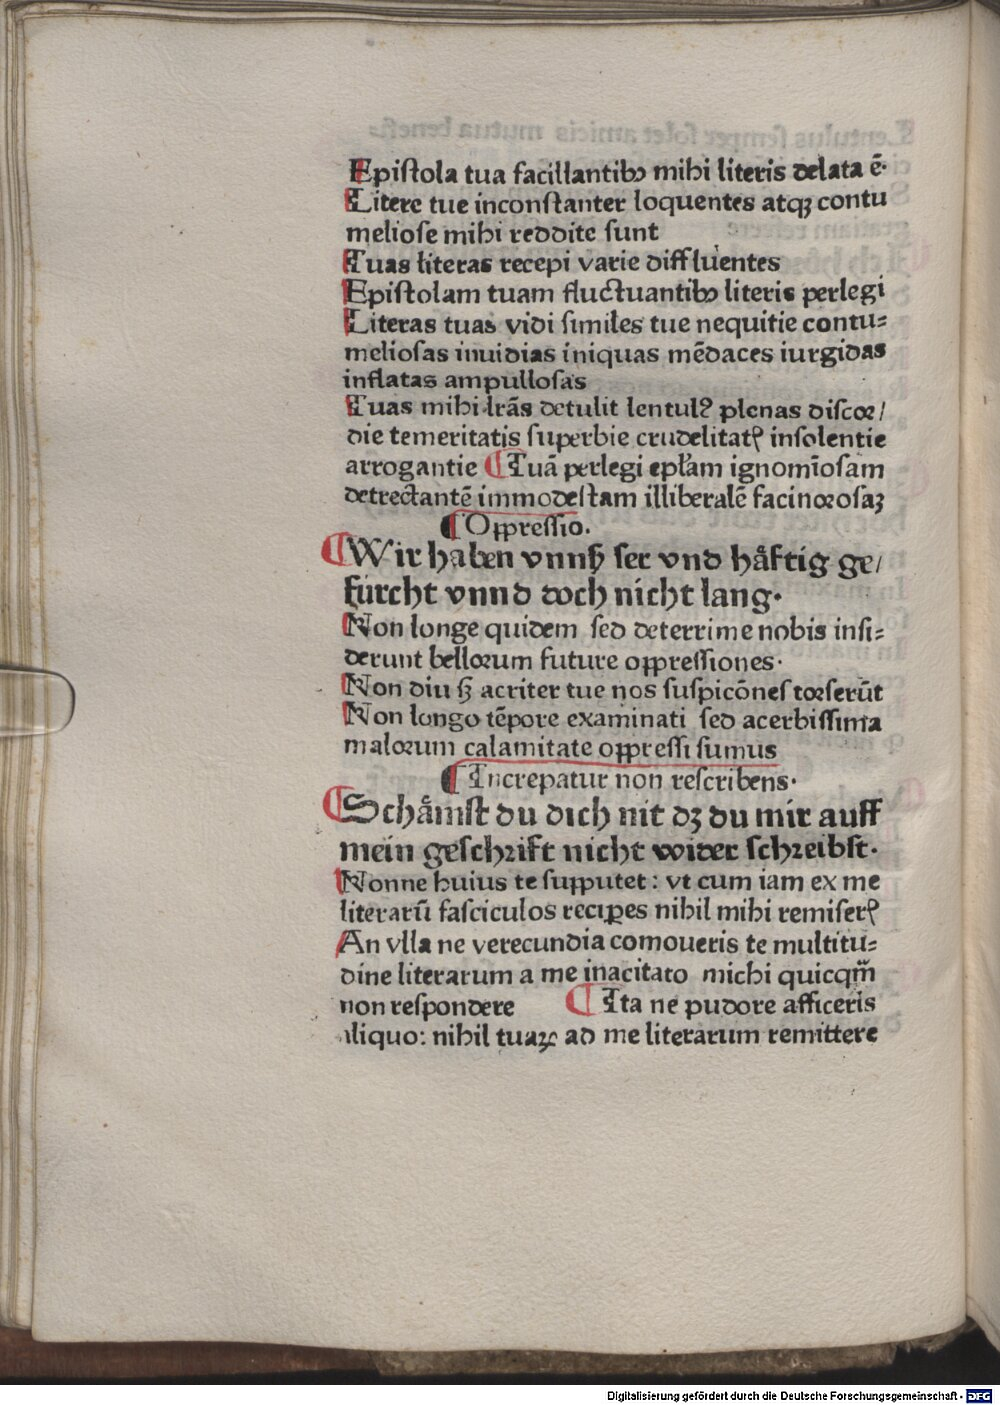 Epiſtola tua facillantibꝫ mihi literis delata ē·
Litere tue inconſtanter loquentes atqꝫ contu
melioſe mihi reddite ſunt
Tuas literas recepi varie diffluentes
Epiſtolam tuam fluctuantibꝫ literis perlegi
Literas tuas vidi ſimiles tue nequitie contu⸗
melioſas inuidias iniquas mēdaces iurgidas
inflatas ampulloſas
Tuas mihi lrās detulit lentulꝰ plenas diſcoꝛ/
die temeritatis ſuperbie crudelitatꝭ inſolentie
arrogantie ¶ Tuā perlegi epl̄am ignomīoſam
detrectantē immodeſtam illiberalē facinoꝛoſaꝫ
¶ Oppreſſio.
¶ Wir haben vnnſz ſer vnd haͤftig ge/
fürcht vnnd doch nicht lang·
Non longe quidem ſed deterrime nobis inſi⸗
derunt belloꝛum future oppreſſiones·
Non diu ſꝫ acriter tue nos ſuſpicōnes toꝛſerūt
Non longo tēpore examinati ſed acerbiſſima
maloꝛum calamitate oppreſſi ſumus
¶ Increpatur non reſcribens·
¶ Schaͤmſt du dich nit dꝫ du mir auff
mein geſchꝛift nicht wider ſchꝛeibſt·
Nonne huius te ſuppudet: vt cum iam ex me
literarū faſciculos recipes nihil mihi remiſerꝭ
An vlla ne verecundia comoueris te multitu⸗
dine literarum a me inacitato michi quicqm̄
non reſpondere ¶ Ita ne pudore afficeris
aliquo: nihil tuaꝝ ad me literarum remittere
Digitalisierung gefördert durch die Deutsche Forschungsgemeinschaft - DFG